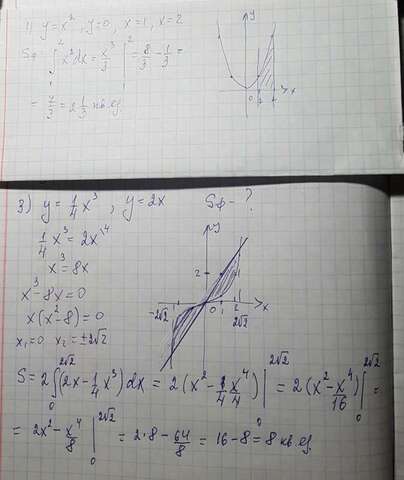 1) y=x², y=0, x=1, x=2
Sф= ∫₁² x²dx = x³/3 |₁² = 8/3 - 1/3 =
= 7/3 = 2 1/3 кв. ед.
y
0 1 2 x
3) y=1/4 x³, y=2x Sф-?
1/4 x³=2x \4
x³=8x
x³-8x=0
x(x²-8)=0
x₁=0 x₂=±2√2
y
2
-2√2 0 1 2 x
2√2
S=2∫₀^(2√2) (2x-1/4 x³)dx = 2(x²-1/4 x⁴/4) |₀^(2√2) = 2(x²-x⁴/16) |₀^(2√2) =
= 2x²-x⁴/8 |₀^(2√2) = 2·8-64/8 = 16-8=8 кв. ед.